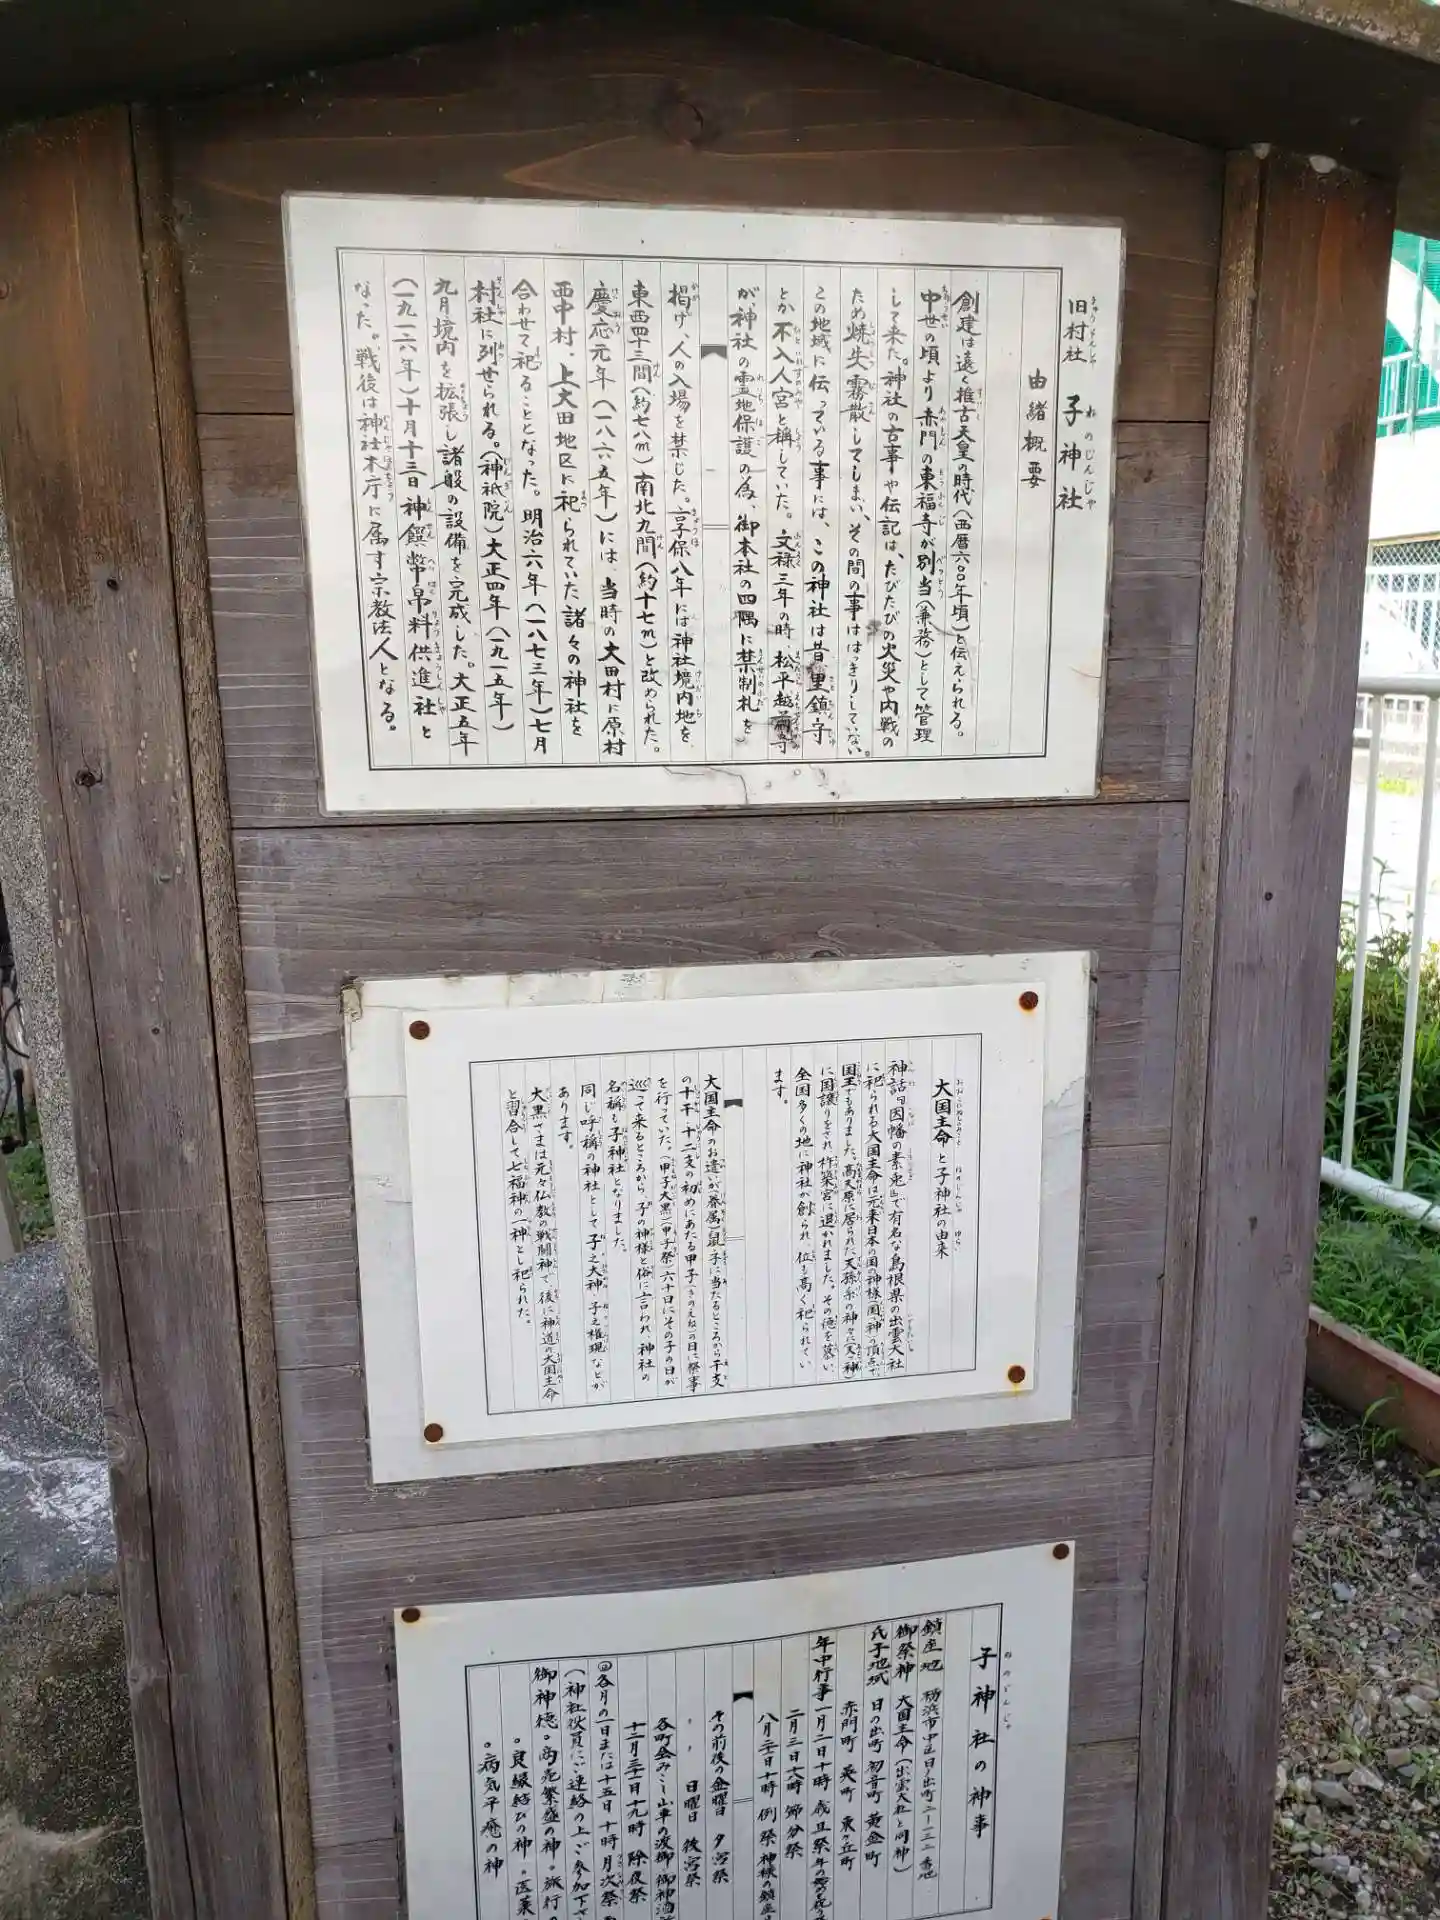 旧村社 子神社
由緒概要
創建は遠く推古天皇の時代(西暦六〇〇年頃)と伝えられる。
中世の頃より赤門の東福寺が別当(兼務)として管理
して来た。神社の古事や伝記は、たびたびの火災や内戦の
ため焼失霧散してしまい、その間の事ははっきりしていない。
この地域に伝っている事には、この神社は昔、里鎮守
とか不入人宮と称していた。文禄三年の時、松平越前守
が、神社の霊地保護の為、御本社の四隅に禁制札を
掲げ、人の入場を禁じた。享保八年には神社境内地を、
東西四十三間(約七八m)南北九間(約十七m)と改められた。
慶応元年(一八六五年)には、当時の太田村に原村
西中村、上大田地区に祀られていた諸々の神社を
合わせて祀ることとなった。明治六年(一八七三年)七月
村社に列せられる。(神祇院)大正四年(一九一五年)
九月境内を拡張し諸般の設備を完成した。大正五年
(一九一六年)十月十三日神饌幣帛料供進社と
なった。戦後は神社本庁に属す宗教法人となる。
大国主命と子神社の由来
神話『因幡の素兎』で有名な島根県の出雲大社
に祀られる大国主命は元来日本の国の神様(国ッ神)の頂点で
国王でもありました。高天原に居られた天孫系の神々に(天ッ神)
に国譲りをされ、杵築宮に退かれました。その徳を慕い、
全国多くの地に神社が創られ、位も高く祀られてい
ます。
大国主命のお遣いが(眷属)鼠・子に当たるところから干支
の十干・十二支の初めにあたる甲子(きのえね)の日に祭事
を行っていた。(甲子大黒)(甲子祭)六十日にその子の日が
巡って来るところから、子の神様と俗に言われ、神社の
名称も子神社となりました。
同じ呼称の神社として子之大神、子之権現などが
あります。
大黒さまは元々仏教の戦闘神で、後に神道の大国主命
と習合して七福神の一神とし祀られた。
子神社の神事
鎮座地 横浜市中区日ノ出町二ー一三二番地
御祭神 大国主命(出雲大社と同神)
氏子地域 日の出町 初音町 黄金町
赤門町 英町 東ヶ丘町
年中行事 一月一日十時 歳旦祭
二月三日十八時 節分祭
八月二十日十時 例祭
その前後の金曜日 夕宮祭
〃 〃 日曜日 後宮祭
各町会みこし山車の渡御
十二月三十一日十九時 除夜祭
各月の一日または十五日十時 月次祭
(神社役員にご連絡の上ご参加下さ
御神徳 。商売繁盛の神 。旅行の
。良縁結びの神 。医薬
。病気平癒の神